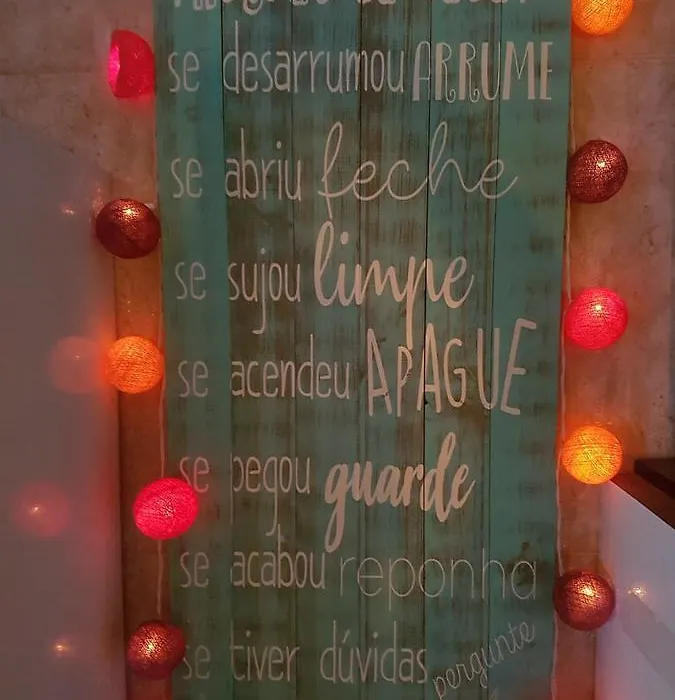 se desarrumou ARRUME
se abriu feche
se sujou limpe
se acendeu APAGUE
se pegou guarde
se acabou reponha
se tiver dúvidas pergunte